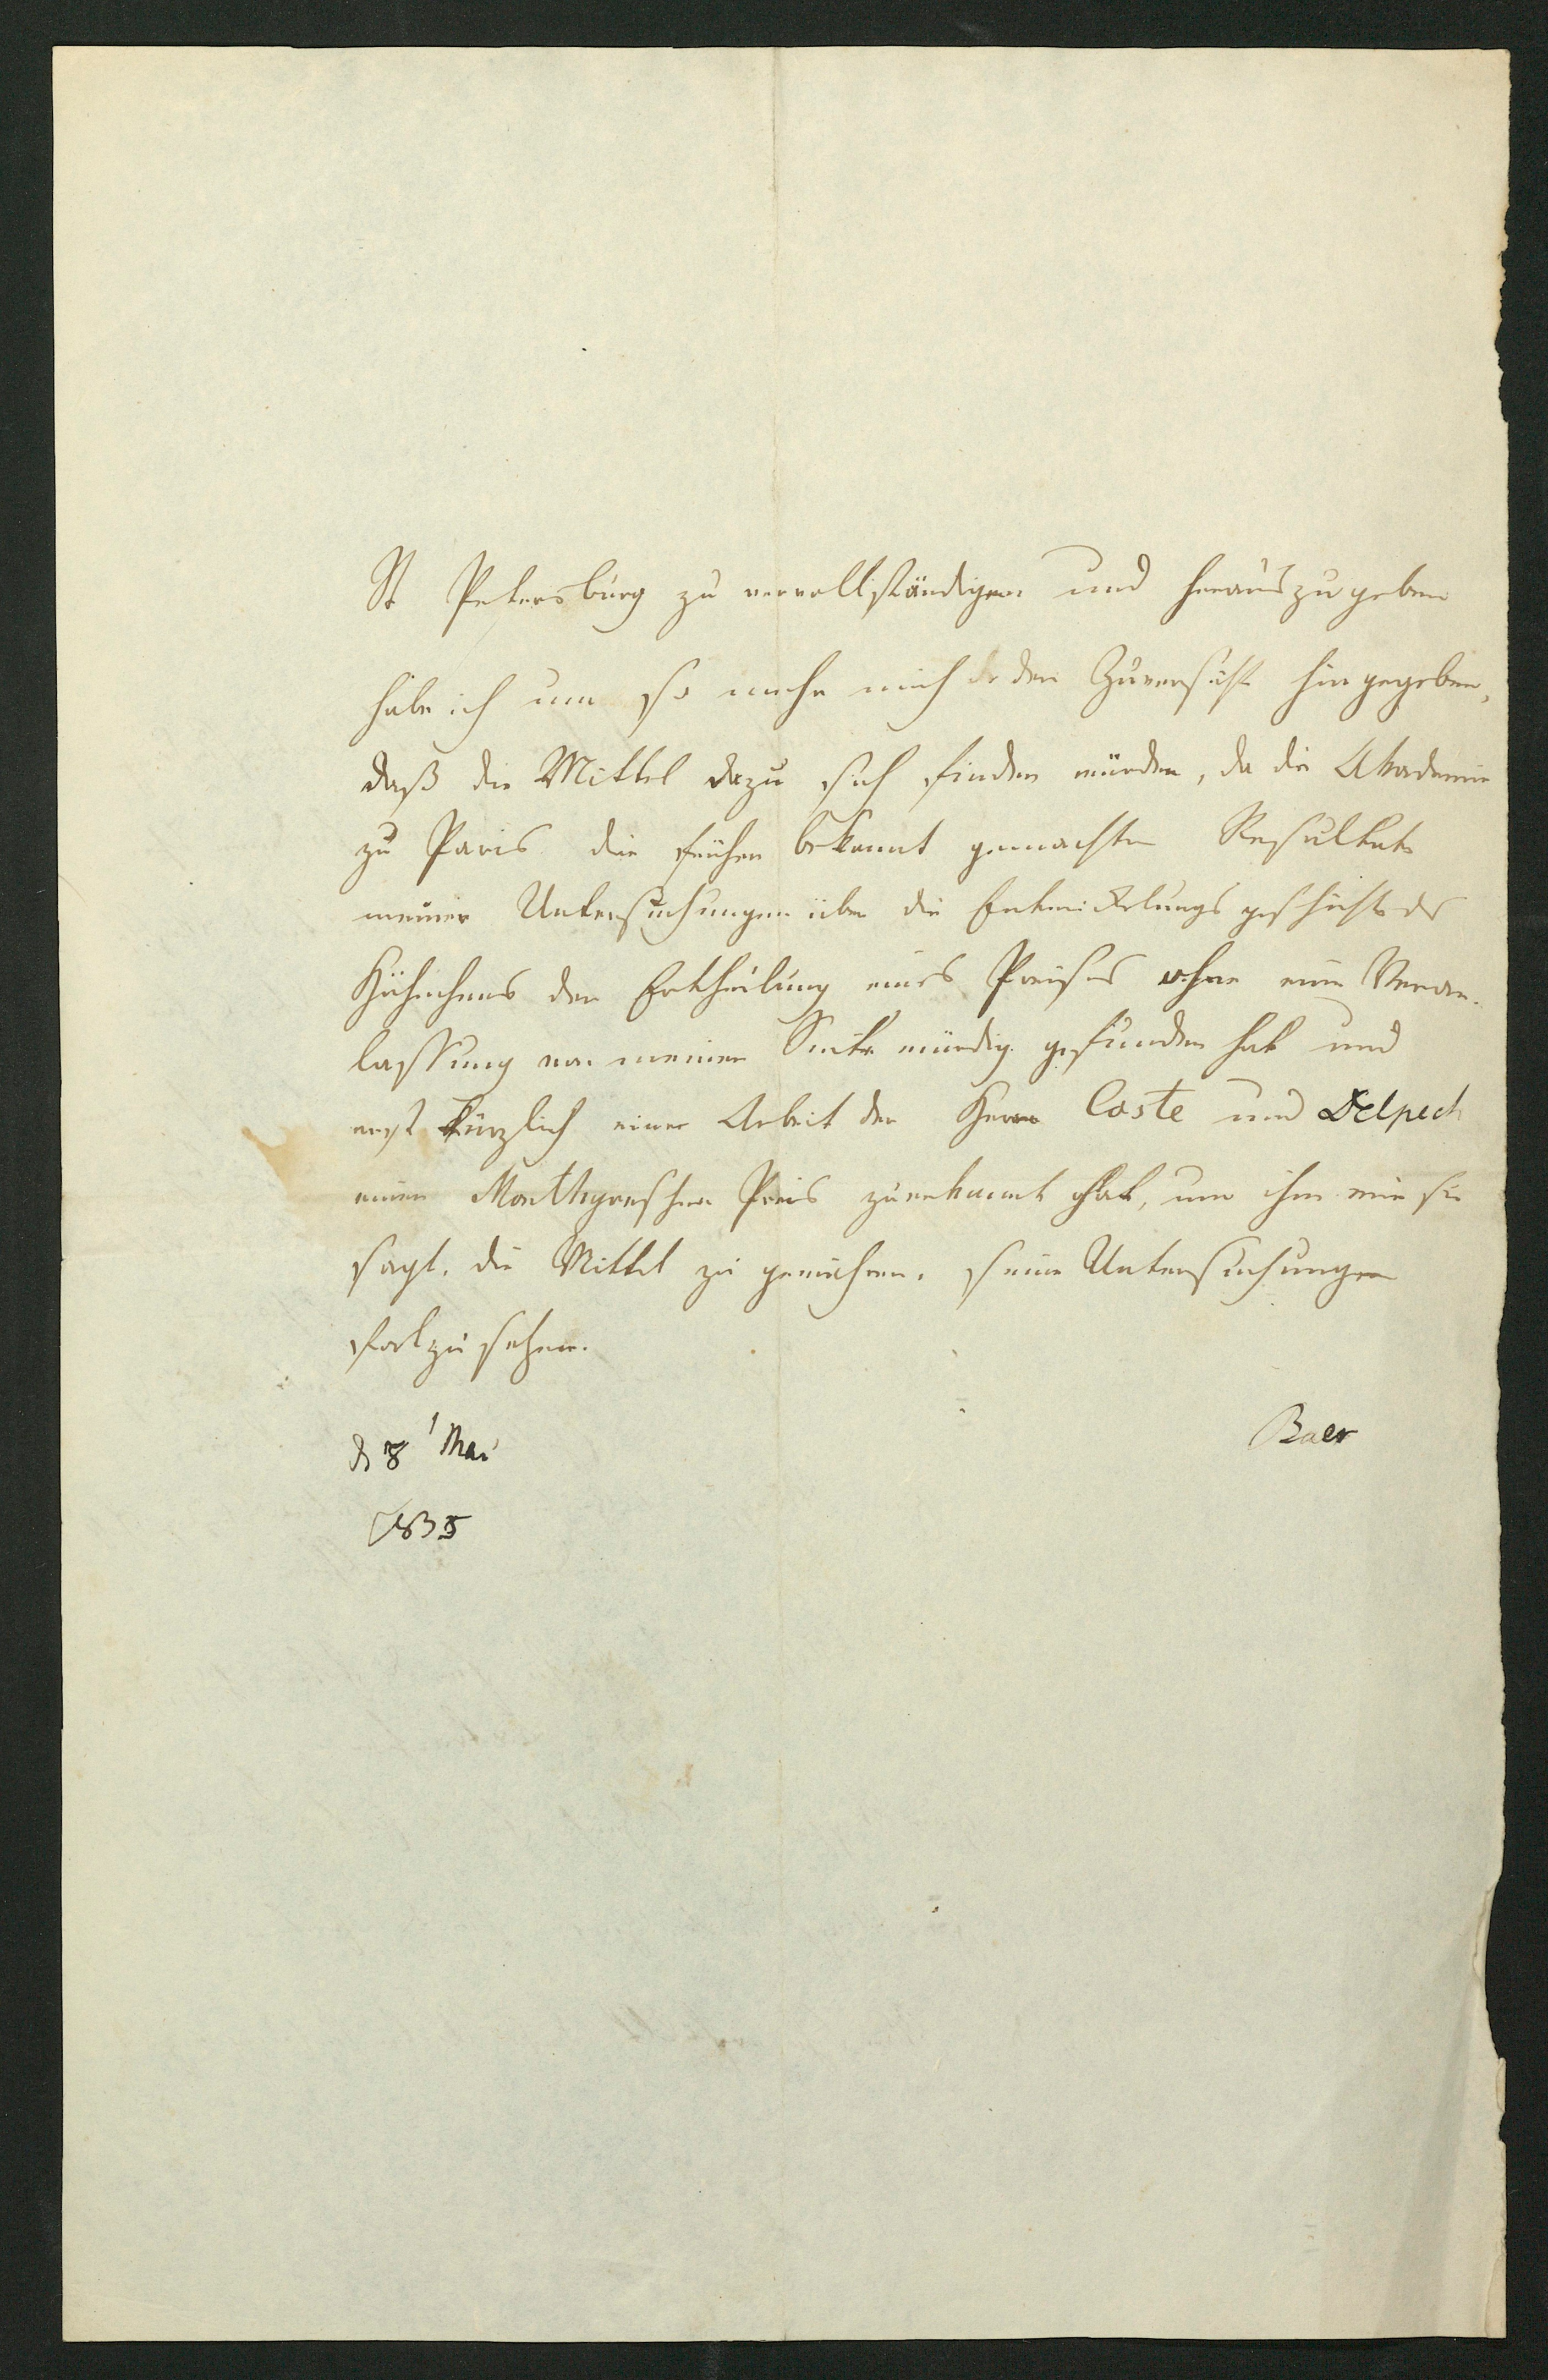 St Petersburg zu vervollständigen und herauszugeben
habe ich um so mehr mich der Zuversicht hingegeben,
daß die Mittel dazu sich finden würden, da die Akademie
zu Paris die früher bekannt gemachten Resultate
meiner Untersuchungen über die Entwickelungsgeschichte des
Hühnchens der Ertheilung eines Preises ohne eine Veran-
lassung von meiner Seite würdig gefunden hat und
erst kürzlich einer Arbeit der Herrn Coste und Delpech
einen Monthyonschen Preis zuerkannt hat, um ihm wie sie
sagt, die Mittel zu gewähren, seine Untersuchungen
fortzusetzen.
Baer
d 8 Mai
1835